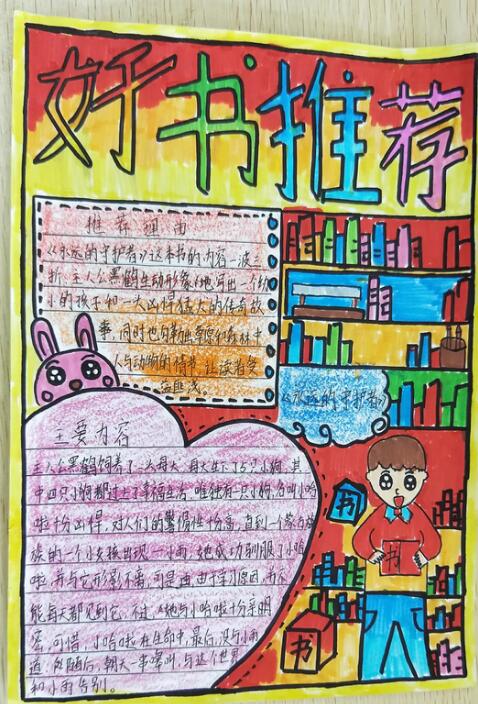 好书推荐
推荐理由
《永远的守护者》这本书的内容一波三
折,主人公黑鹤生动形象地写出一个幼
小的孩子和一犬凶悍猛犬的传奇故
事,同时也勾勒出草原和森林中
人与动物的情节,让读者受
益匪浅。
《永远的守护者》
主要内容
主人公黑鹤饲养了一头母犬,母犬生下了5只小狗,其
中四只小狗都过上了幸福生活,唯独有一只小狗,名叫小哈
啦十分凶悍,对人们的警惕性十分高,直到一个蒙古
族的一个小女孩出现——小雨,她成功驯服了小哈
啦,并与它形影不离,可是雨由于学习原因,并不
能每天都见到它,不过,她与小哈啦十分亲明
密,可惜,小哈啦在生命中最后,没与小雨
道,随后,朝天一声嚎叫,与这个世界
和小雨告别。
书
书
书